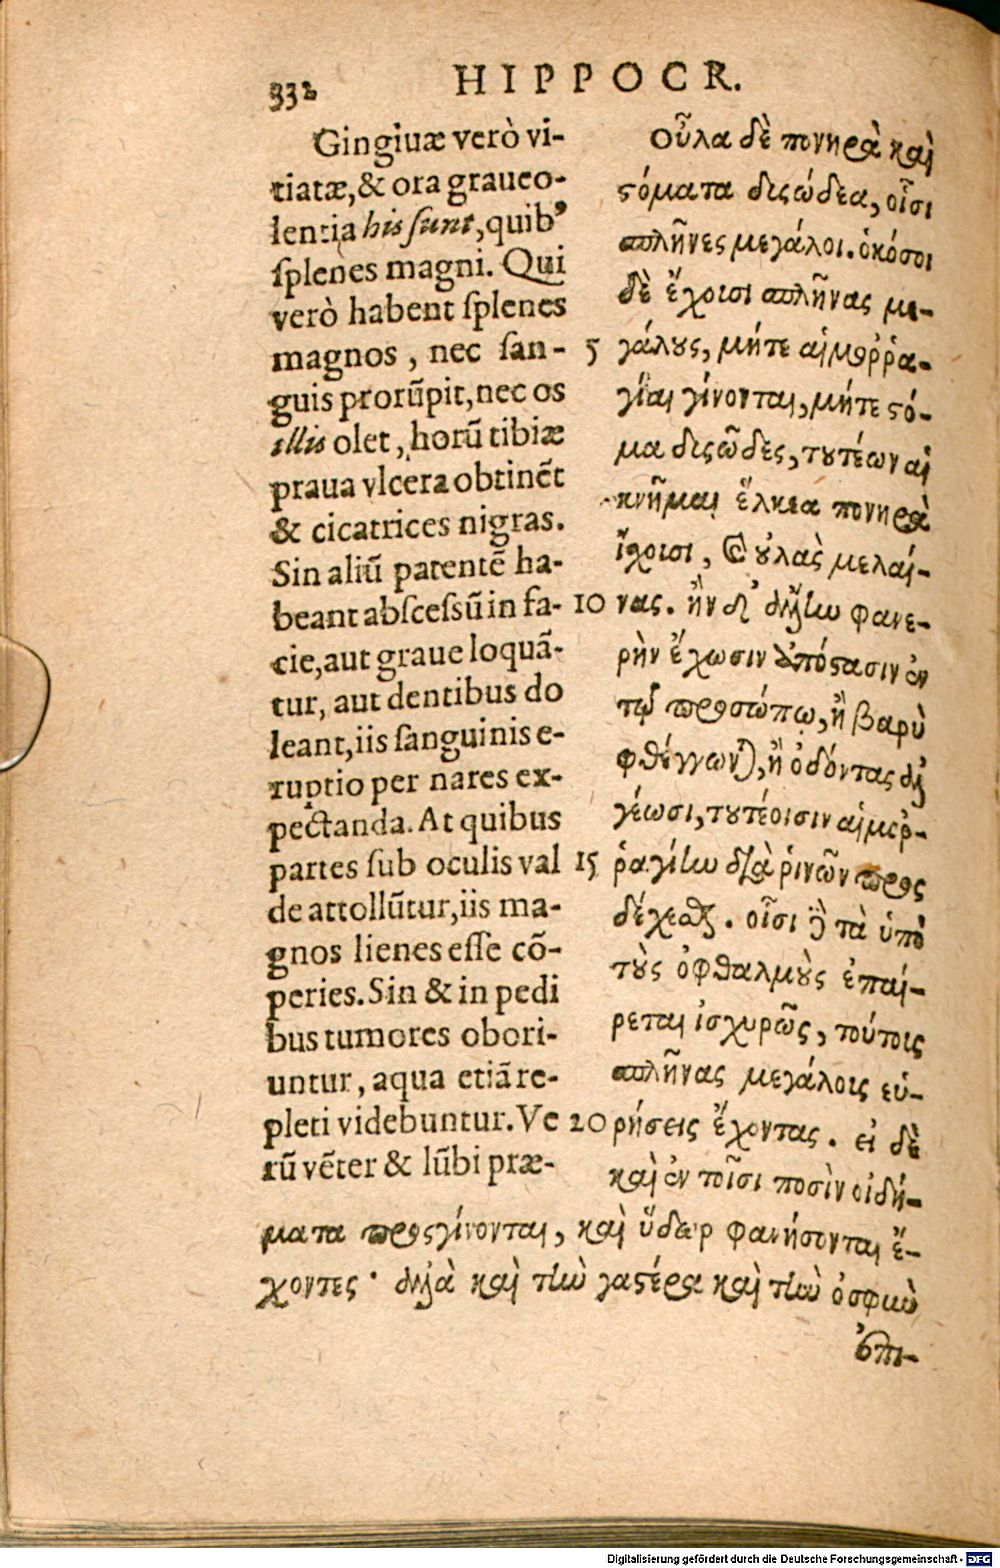 332 HIPPOCR.
Gingiuæ verò vi-
tiatæ, & ora graueo-
lentia his sunt, quib’
splenes magni. Qui
verò habent splenes
magnos, nec san-
guis prorũpit, nec os
illis olet, horũ tibiæ
praua vlcera obtinẽt
& cicatrices nigras.
Sin aliũ patentẽ ha-
beant abscessũ in fa-
cie, aut graue loquã-
tur, aut dentibus do
leant, iis sanguinis e-
ruptio per nares ex-
pectanda. At quibus
partes sub oculis val
de attollũtur, iis ma-
gnos lienes esse cõ-
peries. Sin & in pedi
bus tumores obori-
untur, aqua etiã re-
pleti videbuntur. Ve
rũ vẽter & lũbi præ-
5
10
15
20
οὖλα δὲ πονηρὰ καὶ
ϛόματα δυσώδεα, οἷσι
σπλῆνες μεγάλοι. ὁκόσοι
δὲ ἔχουσι σπλῆνας με-
γάλους, μήτε αἱμοῤῥα-
γίαι γίνονται, μήτε ϛό-
μα δυσῶδες, τουτέων αἱ
κνῆμαι ἕλκεα πονηρὰ
ἴχουσι, καὶ οὐλὰς μελαί-
νας. ἢν δ’ ἄλλην φανε-
ρὴν ἔχωσιν ἀπόϛασιν ἐν
τῷ προσώπῳ, ἢ βαρὺ
φθέγγωνται, ἢ ὀδόντας ἀλ
γέωσι, τουτέοισιν αἱμοῤ-
ῥαγίην διὰ ῥινῶν προς
δέχεσθαι. οἷσι δὲ τὰ ὑπὸ
τοὺς ὀφθαλμοὺς ἐπαί-
ρεται ἰσχυρῶς, τούτοις
σπλῆνας μεγάλοις εὑ-
ρήσεις ἔχοντας. εἰ δὲ
καὶ ἐν τοῖσι ποσὶν οἰδή-
ματα προςγίνονται, καὶ ὕδωρ φανήσονται ἔ-
χοντες· ἀλλὰ καὶ τὴν γαϛέρα καὶ τὴν ὀσφὺν
ἐπι-
Digitalisierung gefördert durch die Deutsche Forschungsgemeinschaft - DFG